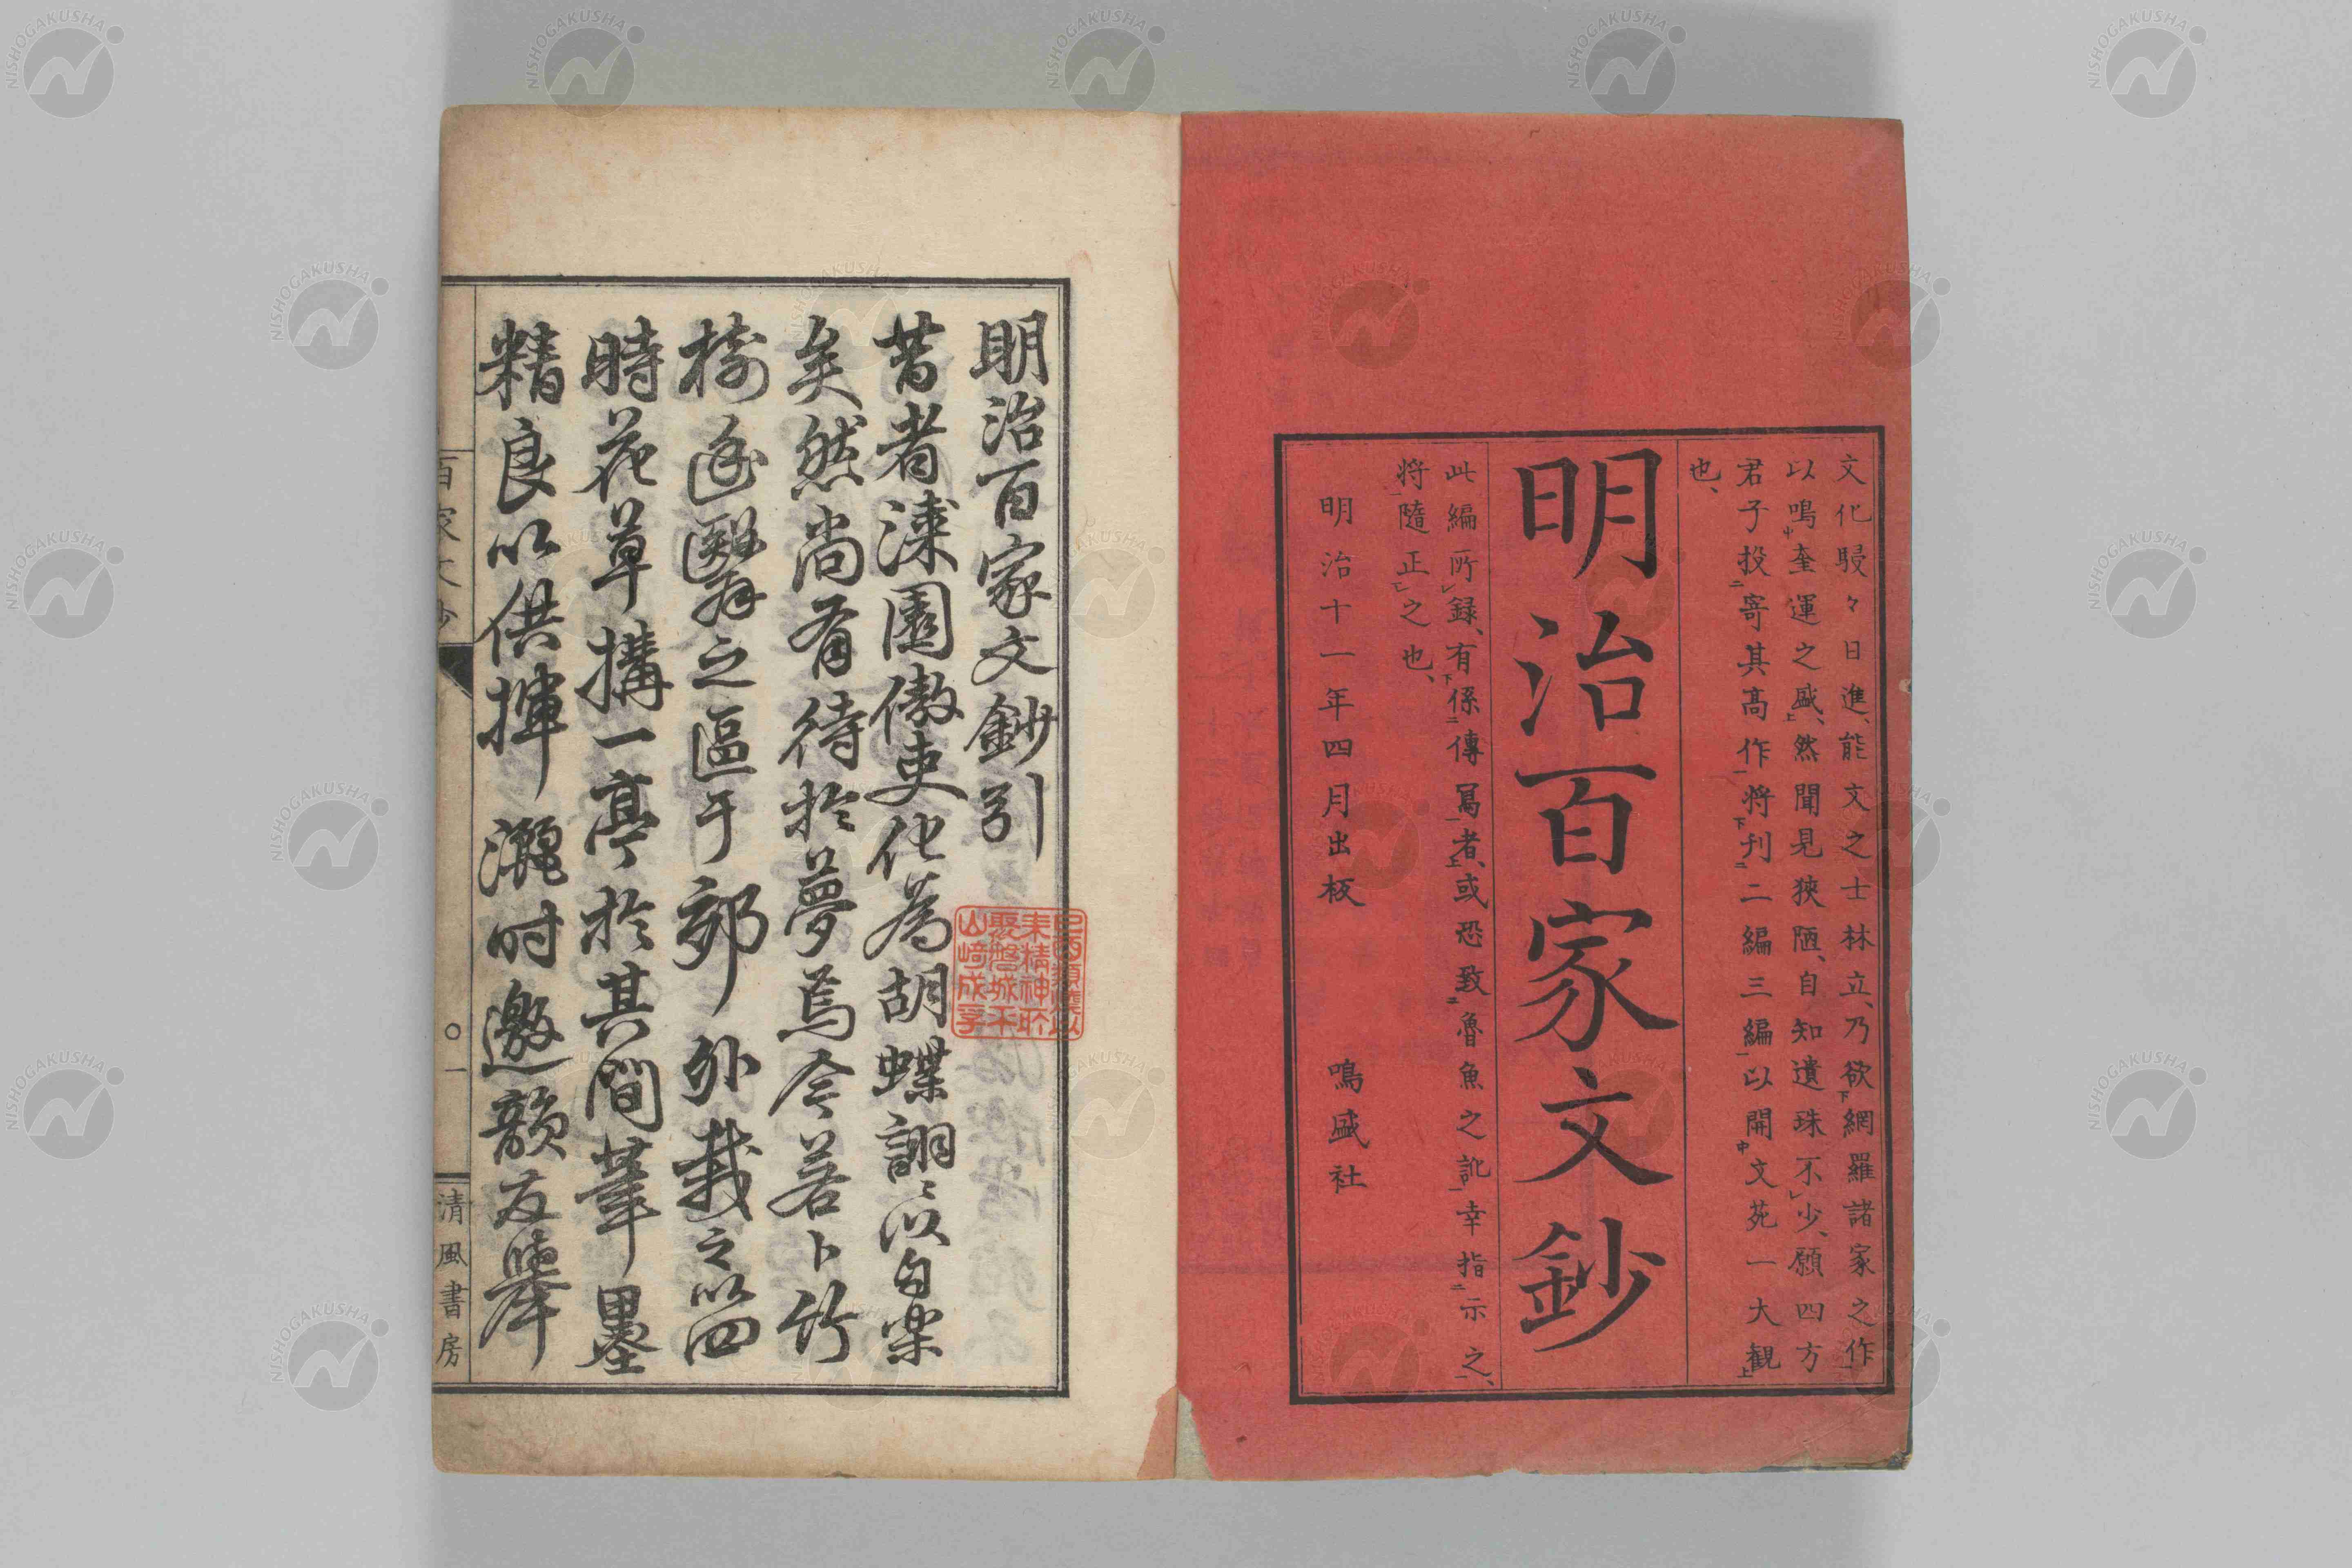 文化駸々日進、能文之士林立、乃欲下網羅諸家之作一
以鳴中奎運之盛上、然聞見狹陋、自知遺珠不レ少、願四方
君子投二寄其高作一将下刊二二編三編一以開中文苑一大観上
也、
明治百家文鈔
此編所レ録、有下係二傳冩一者上、或恐致二魯魚之訛一幸指二示之一、
将隨正之也、
明治十一年四月出板 鳴盛社
明治百家文鈔引
昔者漆園傲吏化為胡蝶詡〻以自楽
矣然尚有待於夢焉今若卜竹
樹逶翳之區于郊外栽之以四
時花草搆一亭於其間筆墨
精良以供揮灑時邀韻友挙
百家文鈔 〇一 清風書房
NISHOGAKUSHA